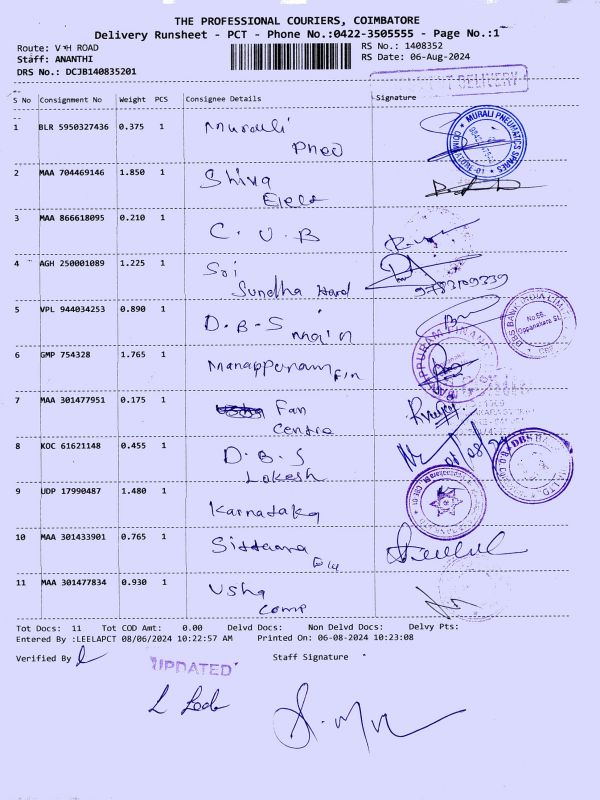 THE PROFESSIONAL COURIERS, COIMBATORE
Delivery Runsheet - PCT - Phone No.:0422-3505555 - Page No.:1
Route: V H ROAD
Staff: ANANTHI
DRS No.: DCJB140835201
RS No.: 1408352
RS Date: 06-Aug-2024
DELIVERY
S No Consignment No Weight PCS Consignee Details Signature
1 BLR 5950327436 0.375 1 Murali
MURALI PNEUMATICS SPARES
2 MAA 704469146 1.850 1 Shiva
Elec
3 MAA 866618095 0.210 1 C. U. B
4 AGH 250001089 1.225 1 Sri
Sundha Hard
5 VPL 944034253 0.890 1 D. B. S
main
DBS BANK INDIA LIMITED
No.66, Oppanakara St.
6 GMP 754328 1.765 1 Manappuram Fin
7 MAA 301477951 0.175 1 Fan
Centre
8 KOC 61621148 0.455 1 D. B. S
Lokesh
DBS BA
9 UDP 17990487 1.480 1 Karnataka
10 MAA 301433901 0.765 1
11 MAA 301477834 0.930 1 Usha
Comp
Tot Docs: 11 Tot COD Amt: 0.00 Delvd Docs: Non Delvd Docs: Delvy Pts:
Entered By :LEELAPCT 08/06/2024 10:22:57 AM Printed On: 06-08-2024 10:23:08
Verified By
Staff Signature
UPDATED